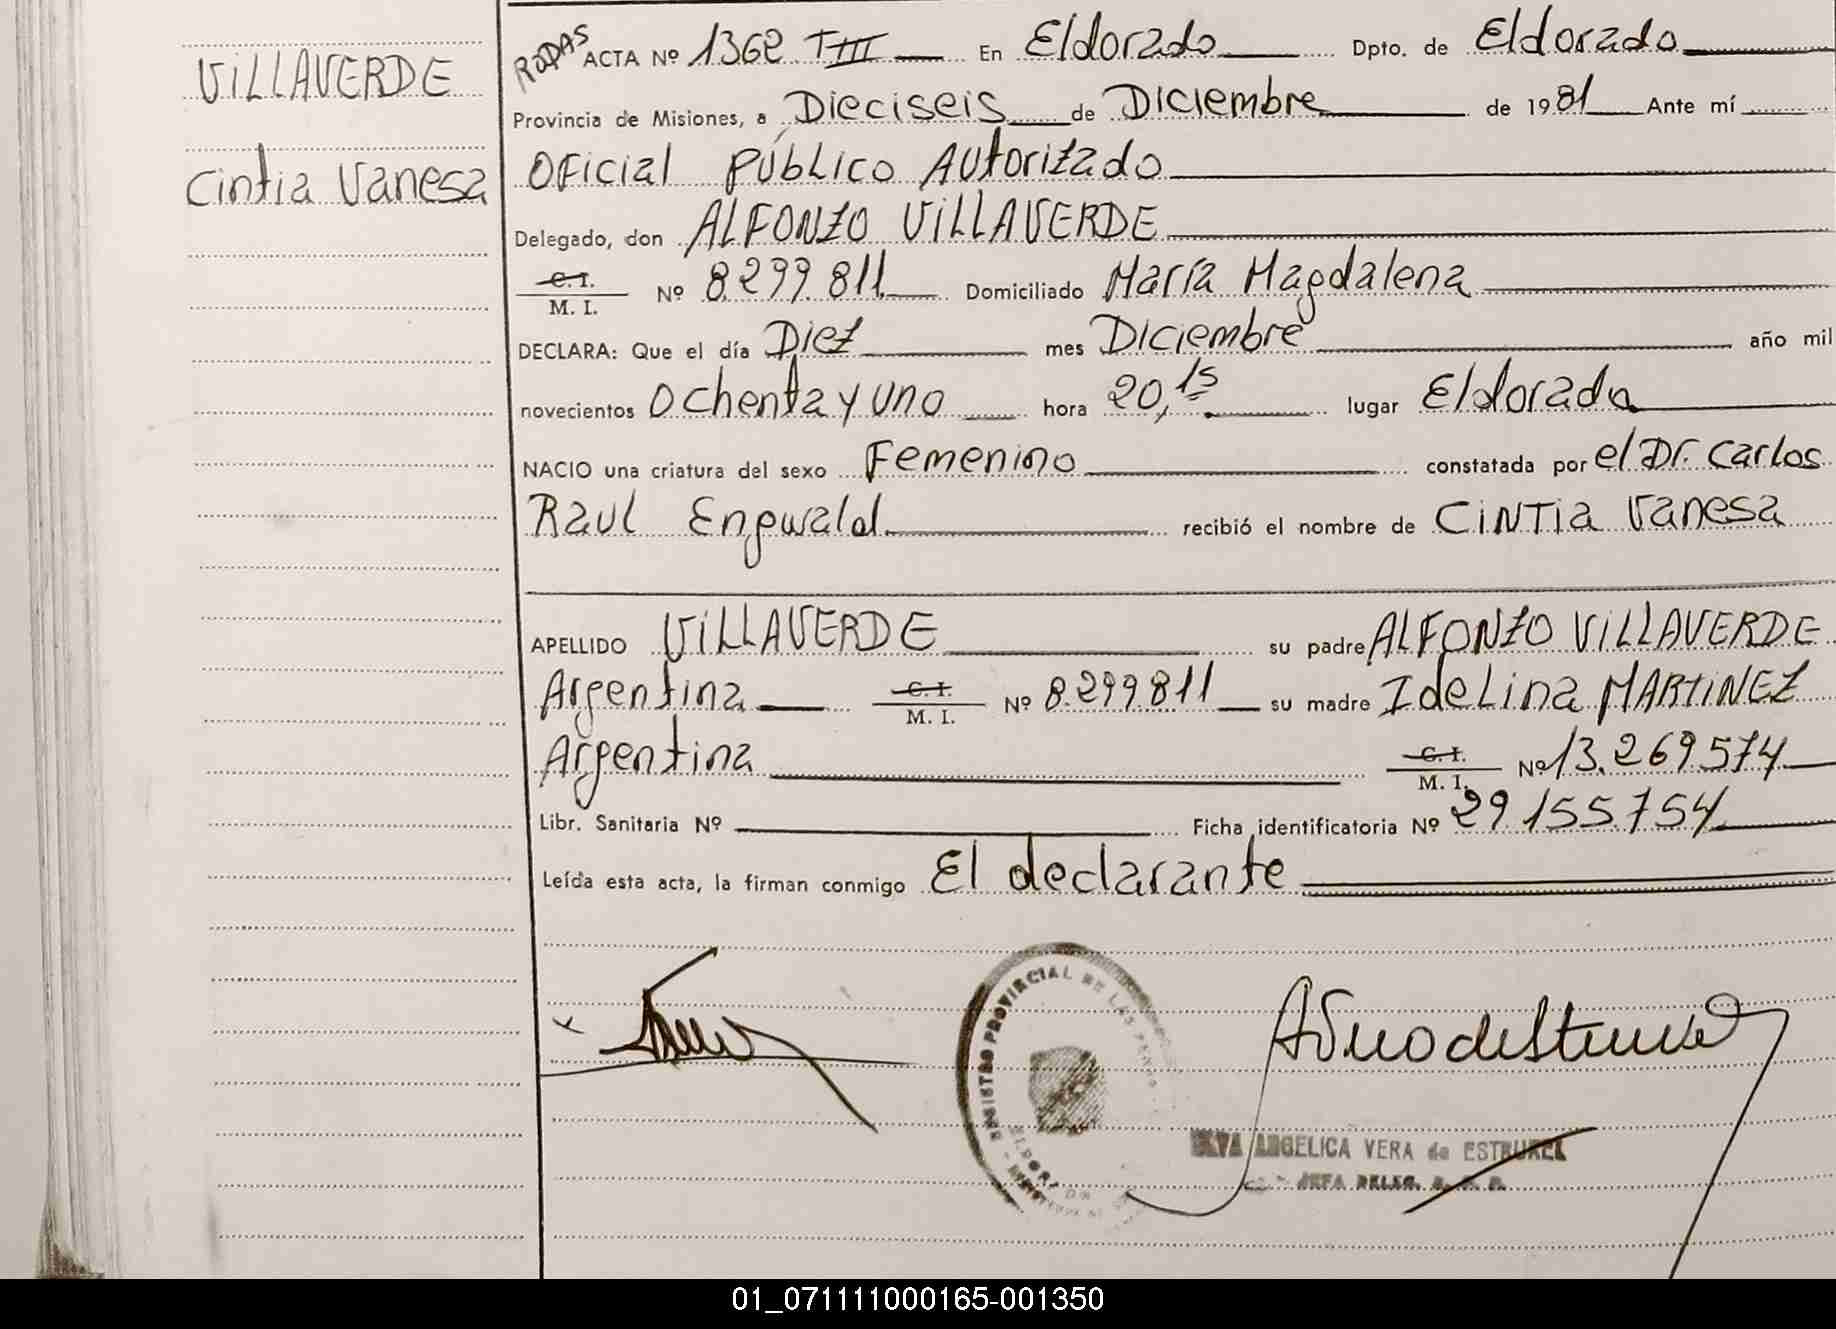 VILLAVERDE
Cintia Vanesa
RODAS ACTA Nº 1362 T III En Eldorado Dpto. de Eldorado
Provincia de Misiones, a Dieciseis de Diciembre de 1981 Ante mí
Oficial Público Autorizado
Delegado, don ALFONZO VILLAVERDE
C. I.
M. I. Nº 8.299.811 Domiciliado María Magdalena
DECLARA: Que el día Diez mes Diciembre año mil
novecientos Ochenta y uno hora 20,15 lugar Eldorado
NACIO una criatura del sexo Femenino constatada por el Dr. Carlos
Raul Engwald recibió el nombre de CINTIA Vanesa
APELLIDO VILLAVERDE su padre ALFONZO VILLAVERDE
Argentina C. I. M. I. Nº 8.299.811 su madre Idelina MARTINEZ
Argentina C. I. M. I. Nº 13.269.574
Libr. Sanitaria Nº Ficha identificatoria Nº 29.155.754
Leída esta acta, la firman conmigo El declarante
REGISTRO PROVINCIAL DE LAS PERSONAS
ANGELICA VERA de ESTRUREL
JEFA DELEG.
01_071111000165-001350